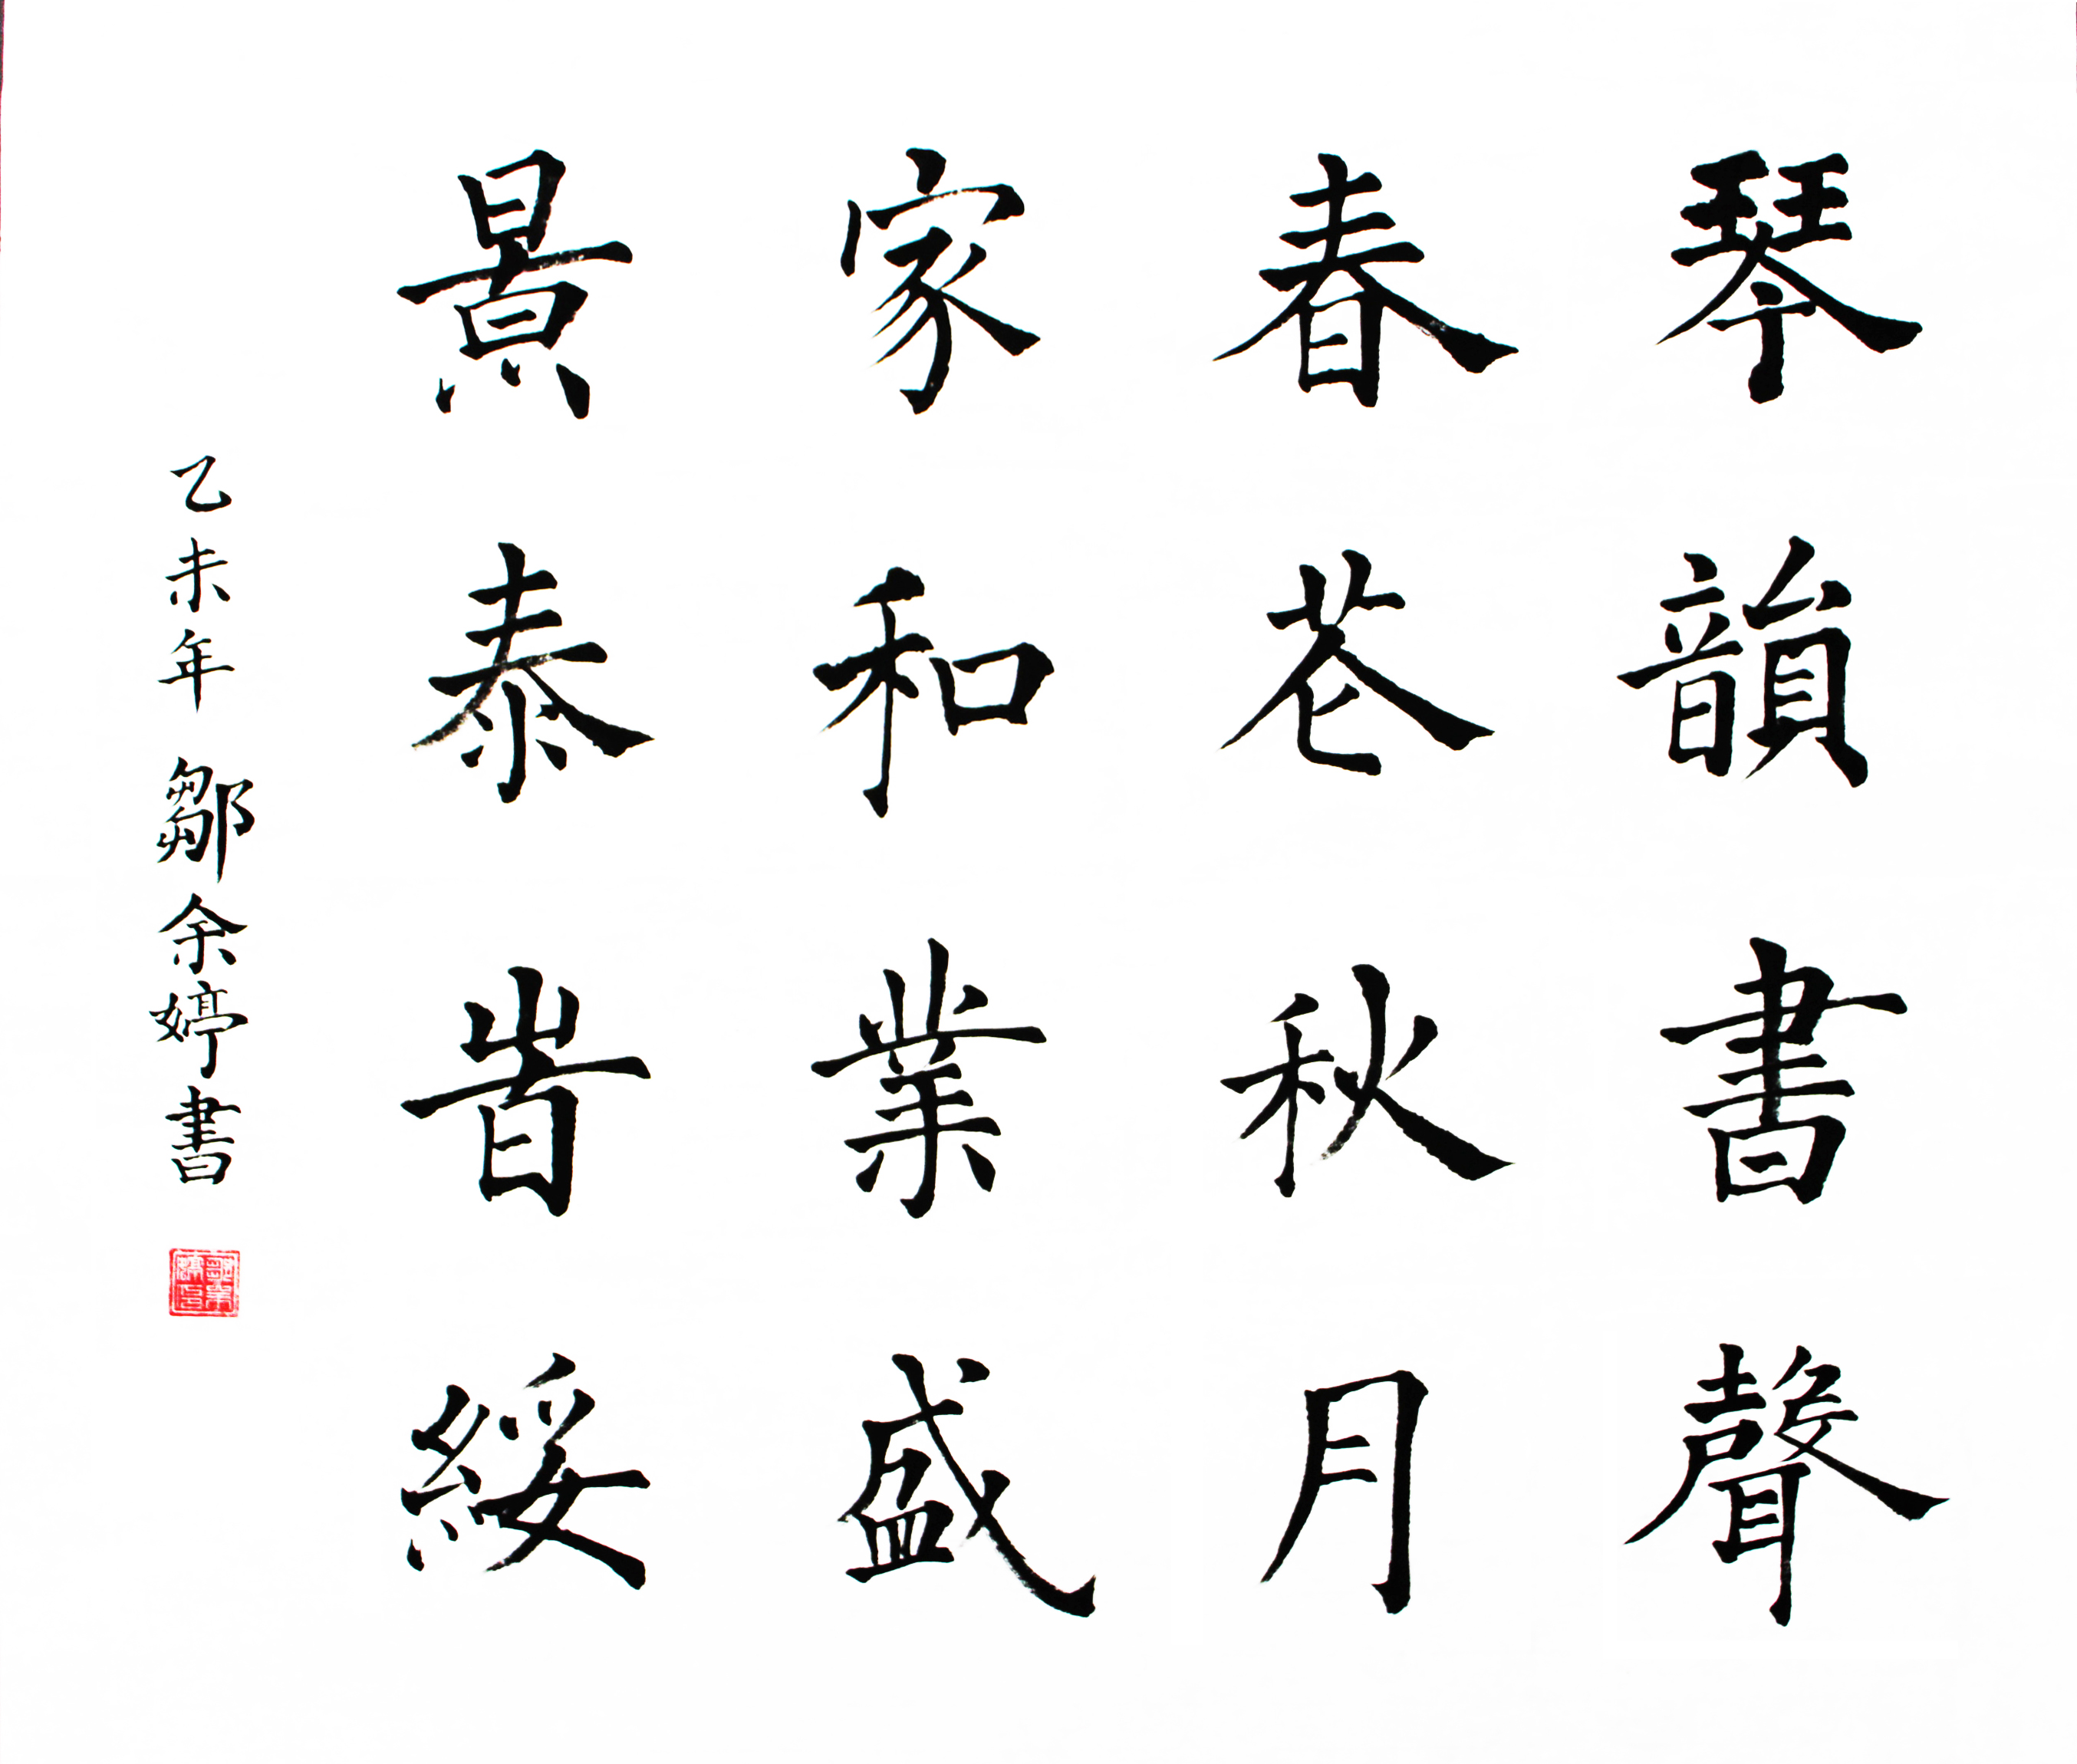 琴韻書聲
春花秋月
家和業盛
景泰旹綏
乙未年 鄒余婷書